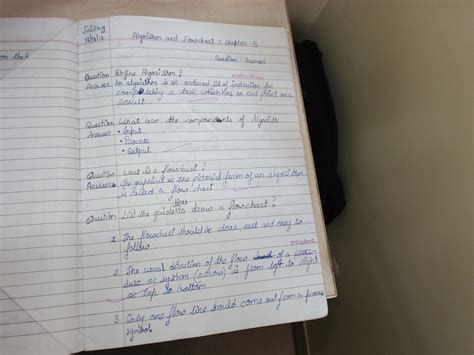 Friday
Algorithm and Flowchart : Chapter - 5
Question - Answer
Question: Define Algorithm?
instruction
Answer: An algorithm is an ordered list of instruction for
completing a task which has an end point or a
result.
Question: What are the components of Algorith
• Input
• Process
• Output
Question: What is a flowchart?
Answer: The graphical or the pictorial form of an algorithm
is called a flow chart.
lines
Question: List the guide to draw a flowchart?
1. The flowchart should be clear, neat and easy to
follow.
procedure
2. The usual direction of the flow of a proce-
dure or system (arrow) is from left to right
or top to bottom
3. Only one flow line should come out from a process
symbol